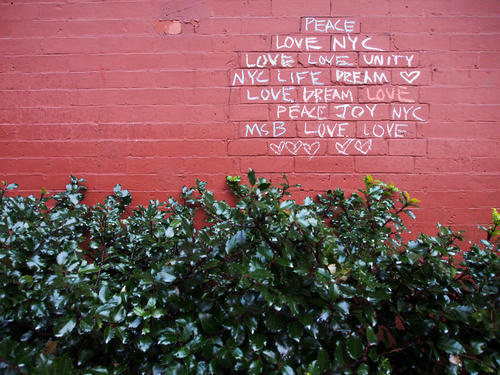 PEACE
LOVE NYC
LOVE LOVE UNITY
NYC LIFE DREAM ♡
LOVE DREAM LOVE
PEACE JOY NYC
MSB LOVE LOVE
♡♡♡ ♡♡